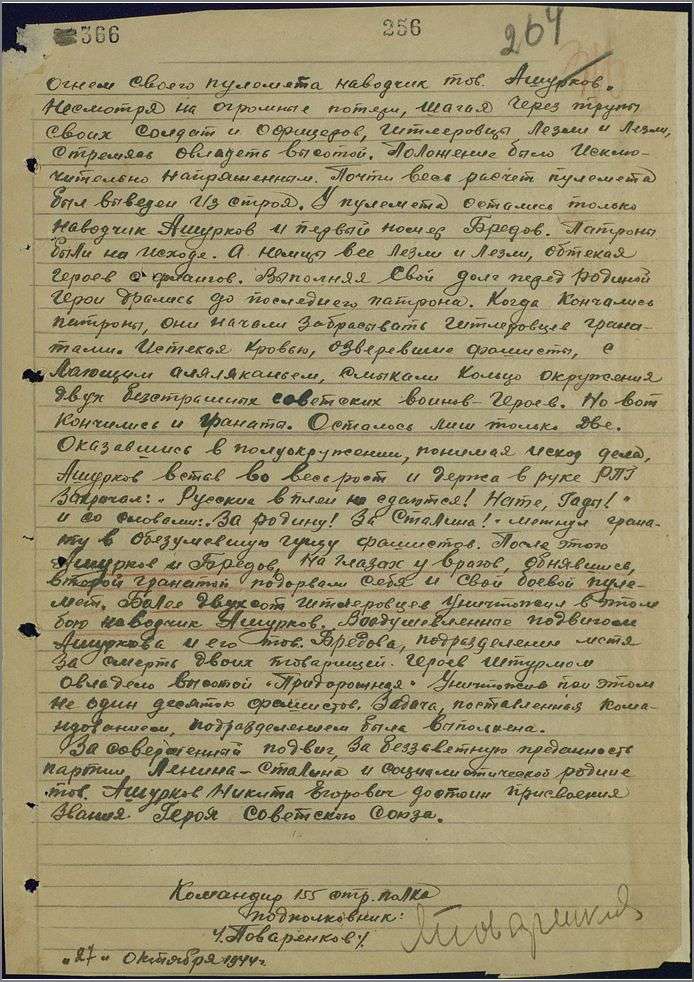 366
256
264
огнем своего пулемета наводчик тов. Ашурков.
Несмотря на огромные потери, шагая через трупы
своих солдат и офицеров, гитлеровцы лезли и лезли,
стремясь овладеть высотой. Положение было исклю-
чительно напряженным. Почти весь расчет пулемета
был выведен из строя. У пулемета остались только
наводчик Ашурков и первый номер Бредов. Патроны
были на исходе. А немцы все лезли и лезли, обтекая
героев с флангов. Выполняя свой долг перед родиной
герои дрались до последнего патрона. Когда кончались
патроны, они начали забрасывать гитлеровцев грана-
тами. Истекая кровью, озверевшие фашисты, с
лающим аляляканьем, смыкали кольцо окружения
двух безстрашных советских воинов-героев. Но вот
кончились и гранаты. Осталось лиш только две.
Оказавшись в полуокружении, понимая исход дела,
Ашурков встав во весь рост и держа в руке РПГ
закричал: „Русские в плен не сдаются! Нате, гады!"
и со словами: „За родину! За Сталина!" метнул грана-
ту в обезумевшую гущу фашистов. После этого
Ашурков и Бредов, на глазах у врагов, обнявшись,
второй гранатой подорвали себя и свой боевой пуле-
мет. Более двухсот гитлеровцев уничтожил в этом
бою наводчик Ашурков. Воодушевленные подвигом
Ашуркова и его тов. Бредова, подразделение мстя
за смерть двоих товарищей-героев штурмом
овладело высотой „Придорожная" уничтожив при этом
не один десяток фашистов. Задача, поставленная кома-
ндованием, подразделением была выполнена.
За совершенный подвиг, за беззаветную преданность
партии Ленина-Сталина и социалистической родине
тов. Ашурков Никита Егорович достоин присвоения
звания Героя Советского Союза.
Командир 155 стр. полка
подполковник:
/Поваренков/
„27" октября 1944г